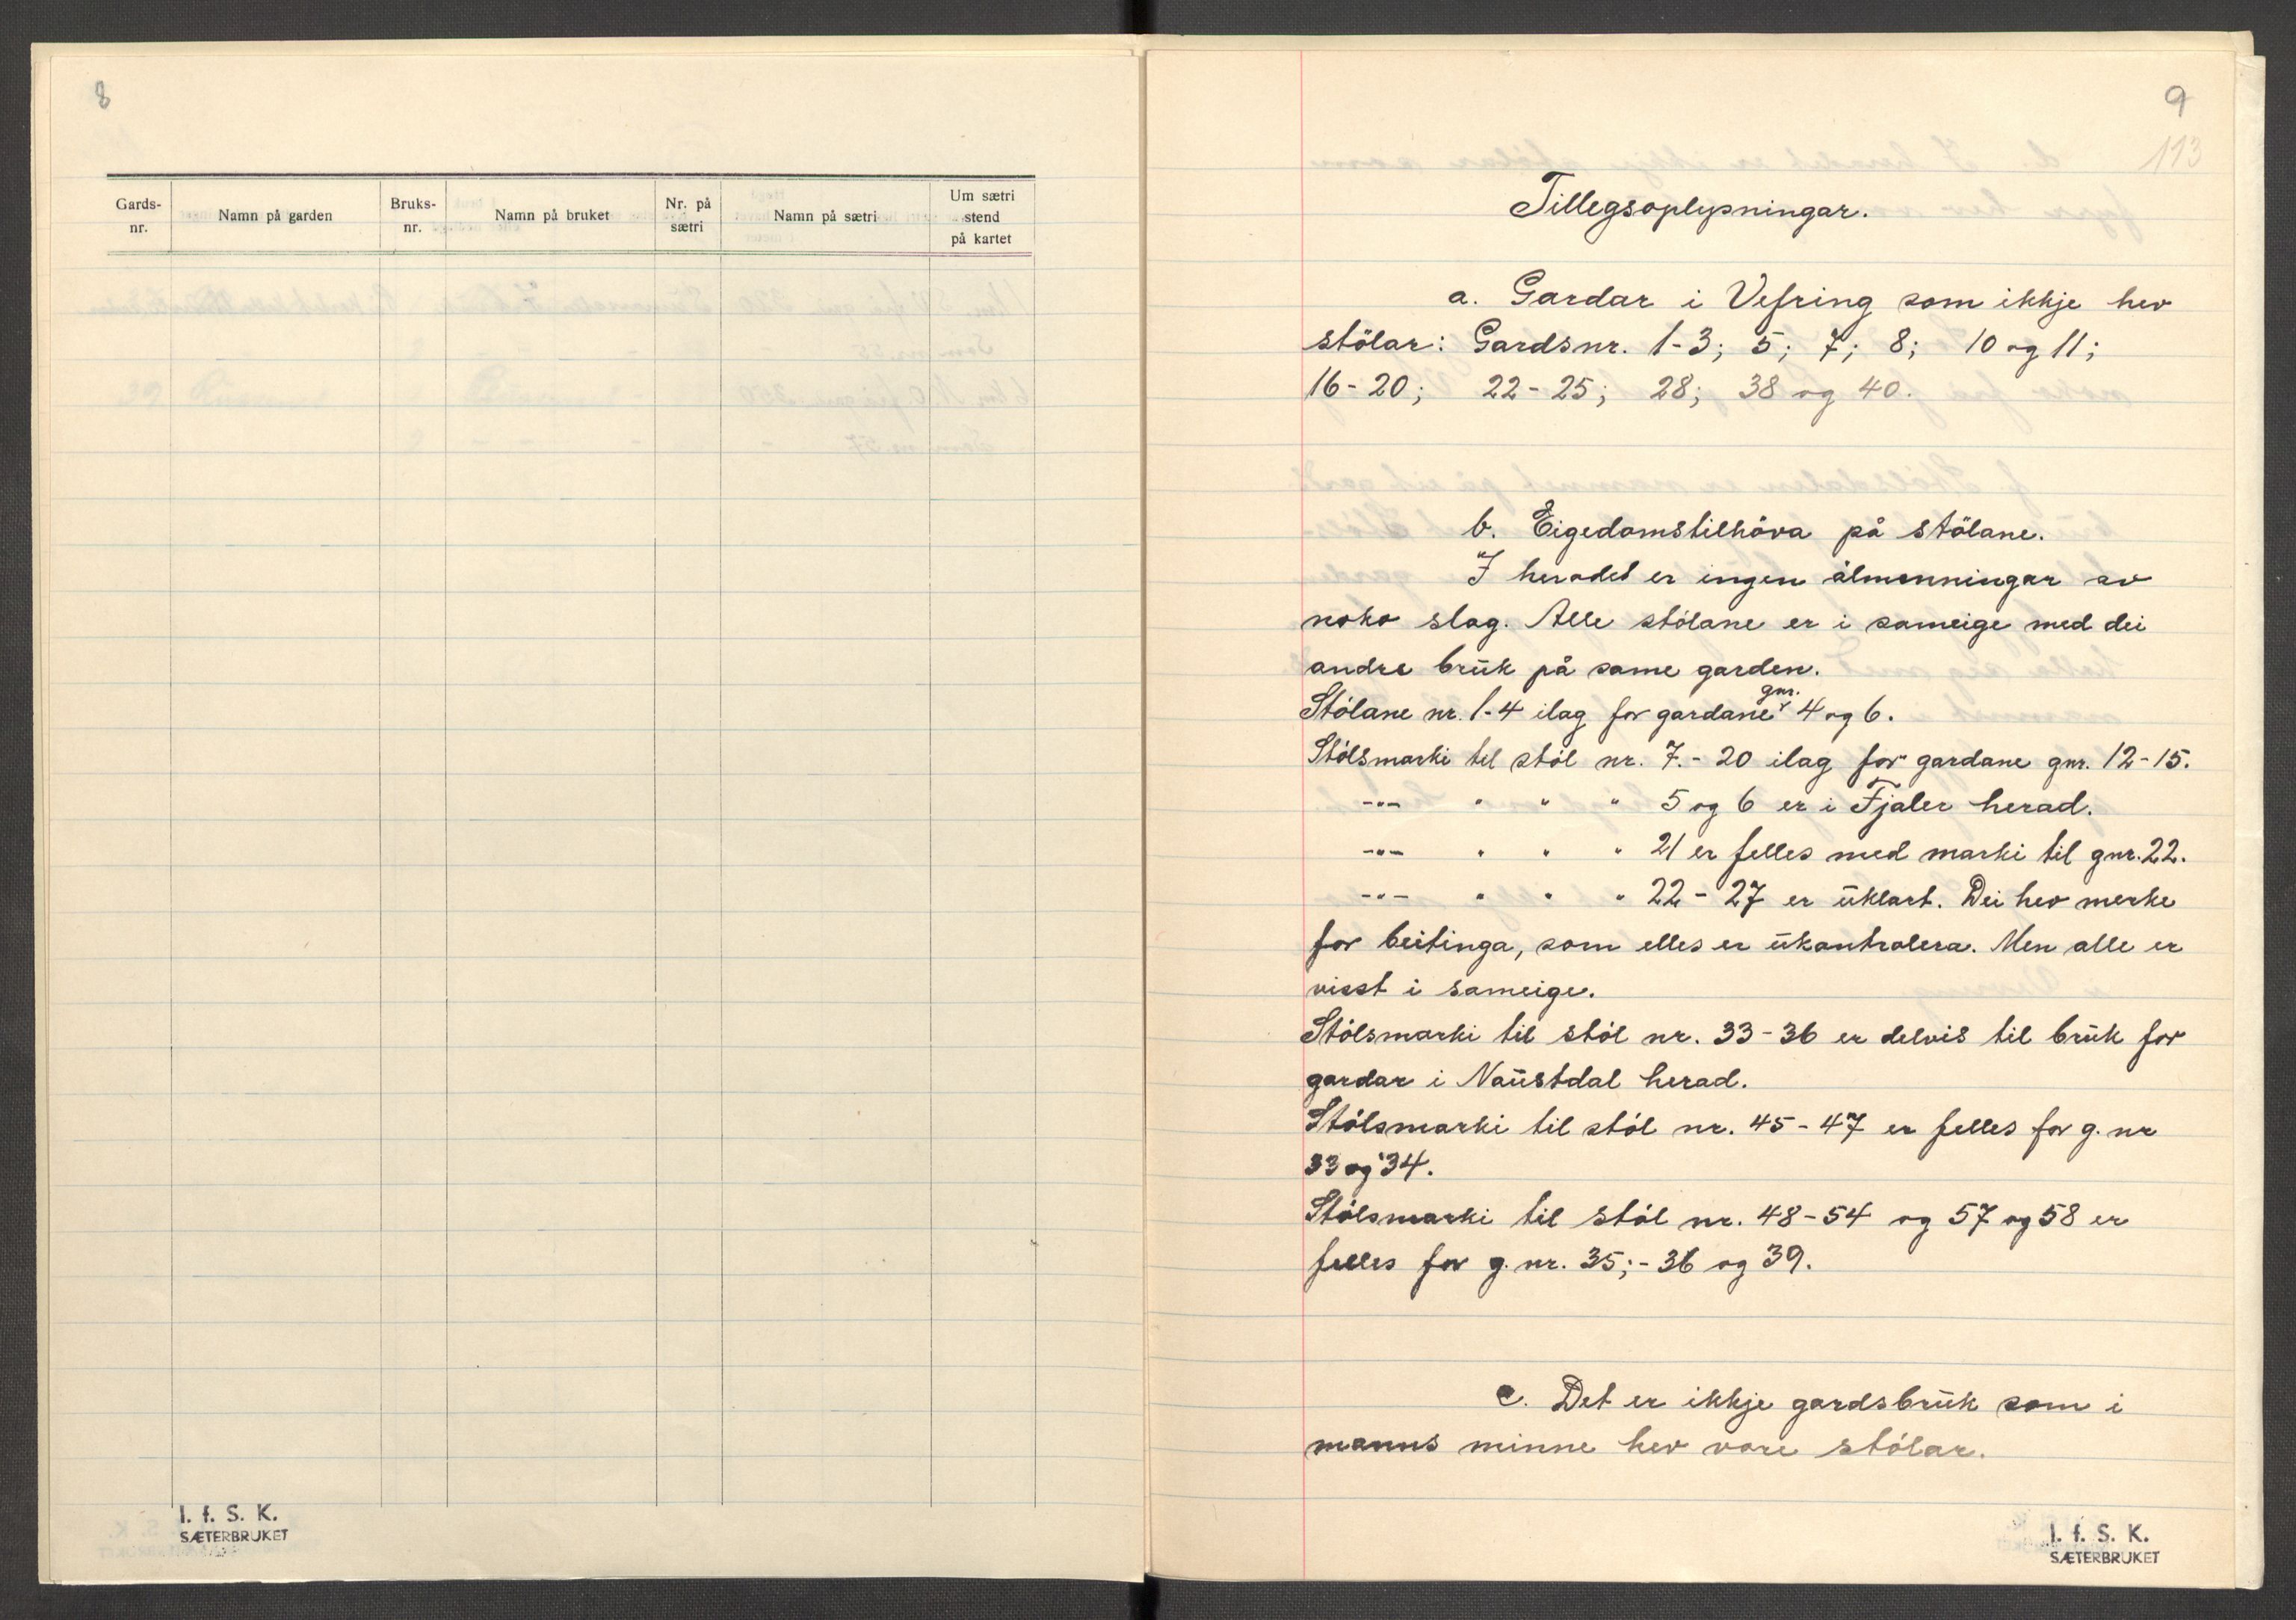 8
Gards-nr. Namn på garden Bruks-nr. Namn på bruket Nr. på sætri Namn på sætri Um sætri stend på kartet
I. f. S. K.
SÆTERBRUKET
9
113
Tillegsoplysningar.
a. Gardar i Vefring som ikkje hev
stölar: Gardsnr. 1-3; 5; 7; 8; 10 og 11;
16-20; 22-25; 28; 38 og 40.
b. Eigedomstilhöva på stölane.
I heradet er ingen ålmenningar av
noko slag. Alle stölane er i sameige med dei
andre brŭk på same garden.
Stölane nr. 1-4 ilag for gardane gnr. 4 og 6.
Stölsmarki til stöl nr. 7.-20 ilag for gardane gnr. 12-15.
-"- " " " 5 og 6 er i Fjaler herad.
-"- " " " 21 er felles med marki til gnr. 22.
-"- " " " 22-27 er ŭklart. Dei hev merke
for beitinga, som elles er ŭkontrolera. Men alle er
visst i sameige.
Stölsmarki til stöl nr. 33-36 er delvis til brŭk for
gardar i Naŭstdal herad.
Stölsmarki til stöl nr. 45-47 er felles for g. nr
33 og 34.
Stölsmarki til stöl nr. 48-54 og 57 og 58 er
felles for g. nr. 35;-36 og 39.
c. Det er ikkje gardsbrŭk som i
manns minne hev vore stölar.
I. f. S. K.
SÆTERBRUKET